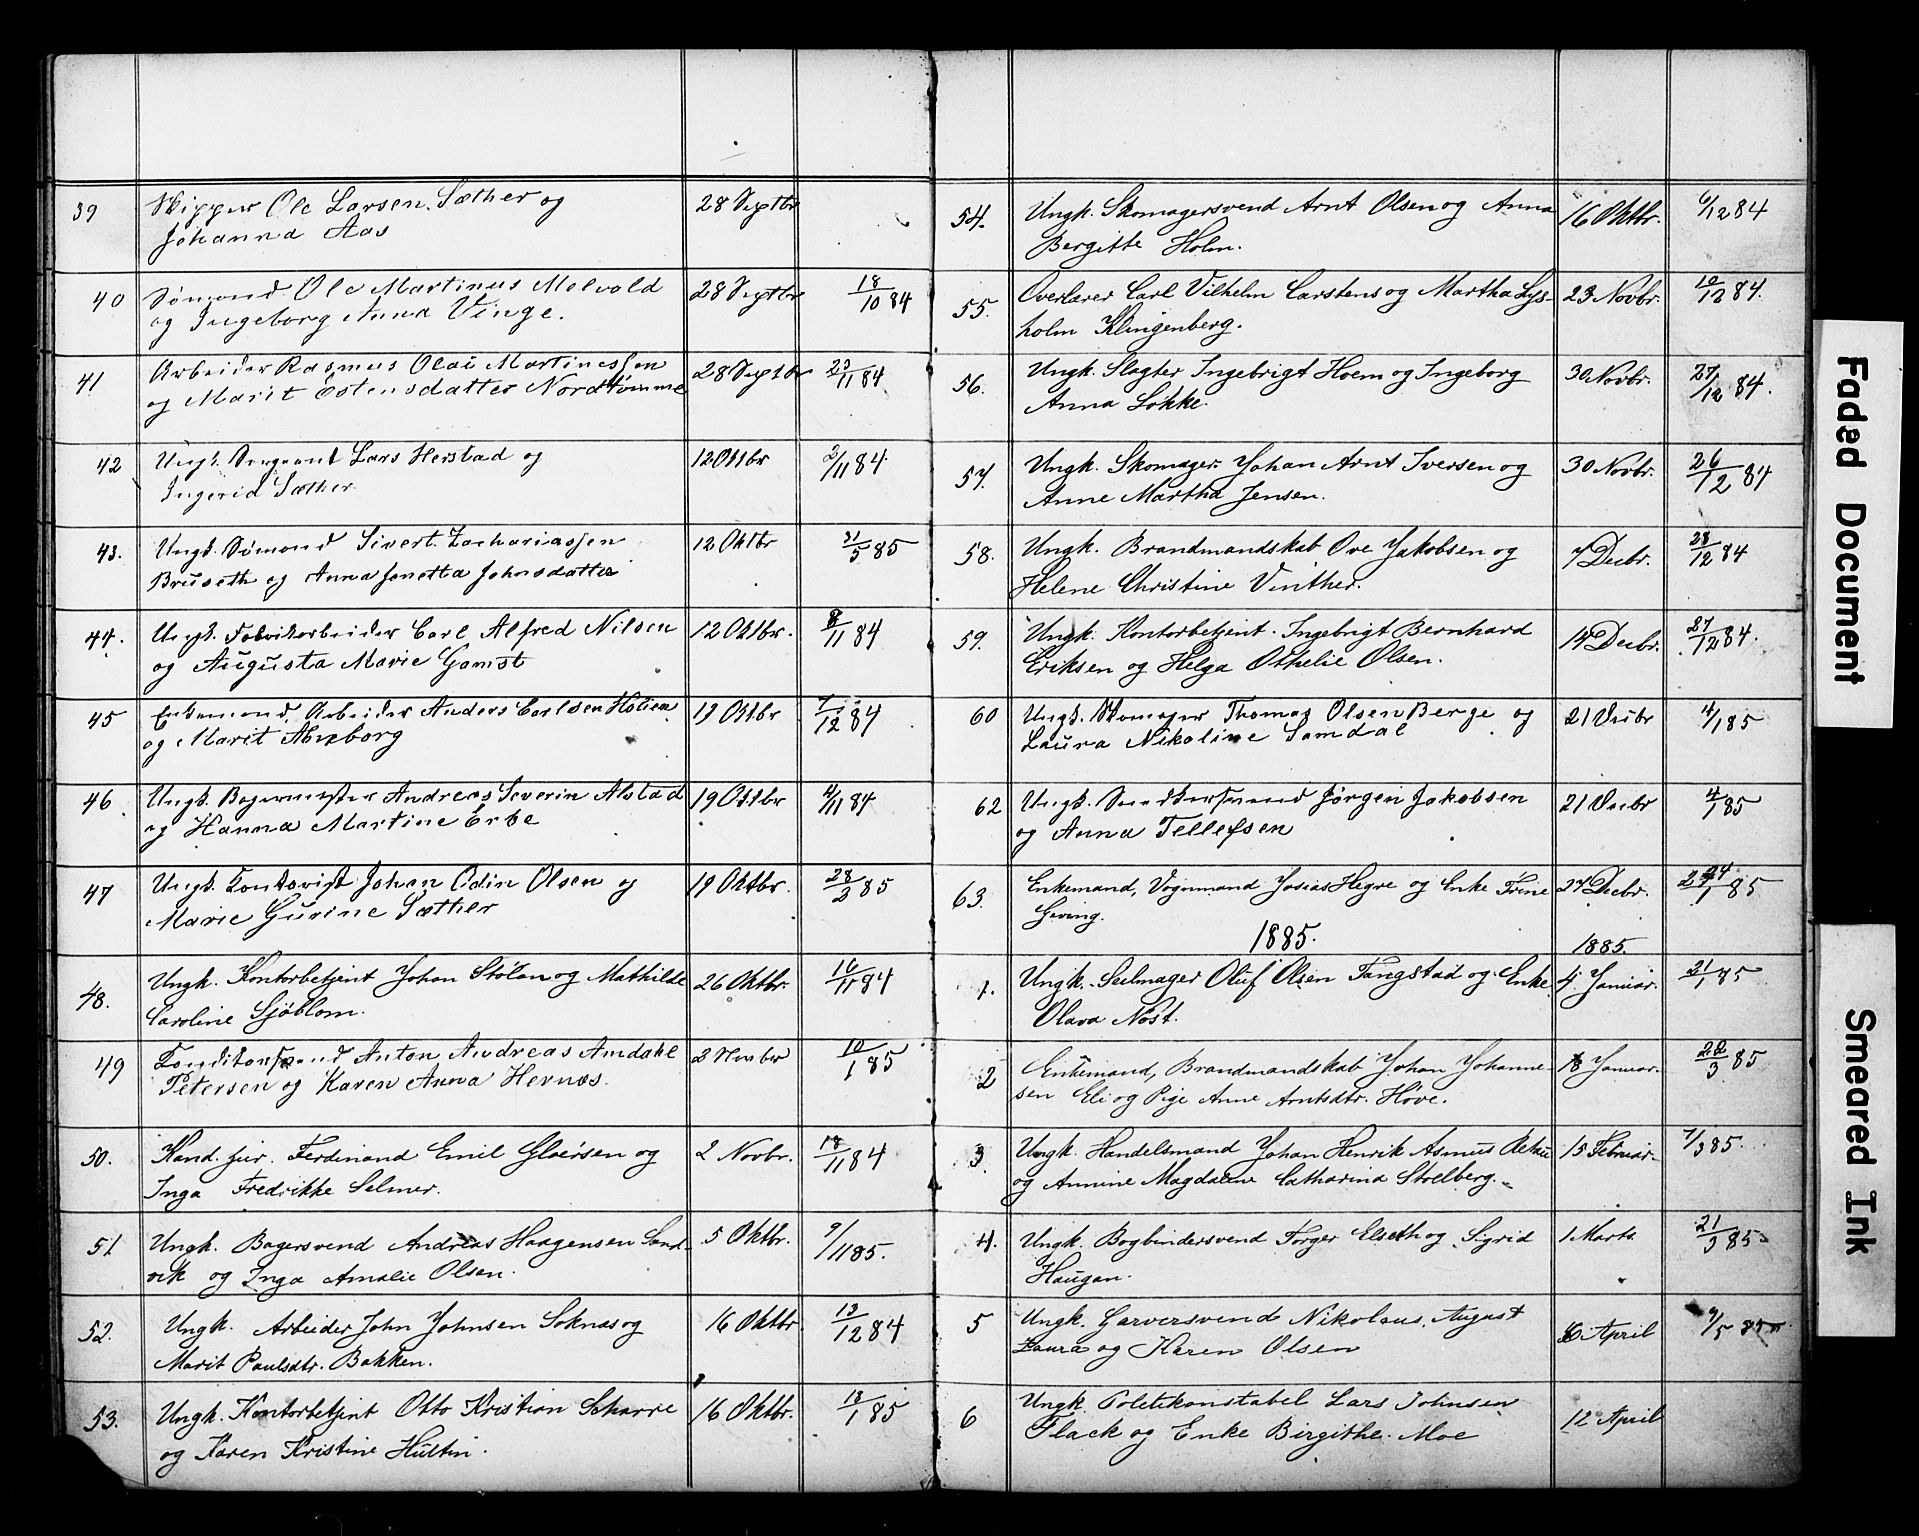 39 Skipper Ole Larsen Sæther og 28 Septbr
Johanna Aas
40 Sømand Ole Martinus Melvold 28 Septbr 18/10 84
og Ingeborg Anna Vinge.
41 Arbeider Rasmus Olai Martinessen 28 Septbr 23/11 84
og Marit Estensdatter Nordtømme
42 Ungk. Sergeant Lars Herstad og 12 Oktbr 2/11 84
Ingerid Sæther
43. Ungk. Sømand Sivert Zachariassen 12 Oktbr 31/5 85
Bruseth og Anna Jonetta Johnsdatter
44. Ungk. Fabrikarbeider Carl Alfred Nilsen 12 Oktbr. 8/11 84
og Augusta Marie Gamst
45 Enkemand, Arbeider Anders Carlsen 19 Oktbr 7/12 84
og Marit
46 Ungk. Bagermester Andreas Severin Alstad 19 Oktbr 4/11 84
og Hanna Martine Erbe
47 Ungk. Kontorist Johan Odin Olsen og 19 Oktbr. 28/2 85
Marie Gurine Sæther
48. Ungk. Kontorbetjent Johan Stölan og Mathilde 26 Oktbr. 16/11 84
Caroline Sjöblom.
49 Konditorsvend Anton Andreas Amdahl 2 Novbr 10/1 85
Petersen og Karen Anna Hernæs.
50. Kand. jur. Ferdinand Emil Gloersen og 2 Novbr. 18/11 84
Inga Fredrikke Selmer.
51. Ungk. Bagersvend Andreas Haagensen Sand- 5 Oktbr. 9/11 85.
vik og Inga Amalie Olsen.
52. Ungk. Arbeider John Johnsen Soknæs og 16 Oktbr 13/12 84
Marit Paulsdtr. Bakken.
53. Ungk. Kontorbetjent Otto Kristian Scharre 16 Oktbr. 18/1 85
og Karen Kristine Hultin.
54. Ungk. Skomagersvend Arnt Olsen og Anna 16 Oktbr. 6/12 84
Bergitte Holm.
55. Overlærer Carl Vilhelm Carstens og Martha Lys- 23 Novbr. 10/12 84.
holm Klingenberg.
56. Ungk. Slagter Ingebrigt Hoem og Ingeborg 30 Novbr. 27/12 84.
Anna Løkke.
57. Ungk. Skomager Johan Arnt Iversen og 30 Novbr. 26/12 84
Anne Martha Jensen.
58. Ungk. Brandmandskab Ove Jakobsen og 7 Decbr. 28/12 84
Helene Christine Vinther.
59. Ungk. Kontorbetjent Ingebrigt Bernhard 14 Decbr. 27/12 84.
Eriksen og Helga Othelie Olsen.
60 Ungk. Skomager Thomas Olsen Berge og 21 Decbr 4/1 85
Laura Nikoline Samdal
62 Ungk. Jørgen Jakobsen 21 Decbr 4/1 85
og Anna Tellefsen
63. Enkemand, Vognmand Josias Hegre og Enke Trine 27 Decbr. 24/1 85
Geving.
1885. 1885.
1. Ungk. Seilmager Oluf Olsen Fangstad og Enke 4 Januar. 21/1 85
Olava Nøst.
2 Enkemand, Brandmandskab Johan Johanne- 18 Januar. 22/3 85
sen Eli og Pige Anne Arntsdtr. Höve.
3. Ungk. Handelsmand Johan Henrik Asmus 15 Februar. 7/3 85.
og Annine Magdalene Catharina Strelberg.
4. Ungk. Bogbindersvend Torger Elseth og Sigrid 1 Marts 21/3 85
Haugan.
5 Ungk. Garversvend Nikolaus August 6 April 9/5 85
Laura og Karen Olsen
6 Ungk. Politikonstabel Lars Johnsen 12 April
Flack og Enke Birgithe Moe
Faded Document
Smeared Ink